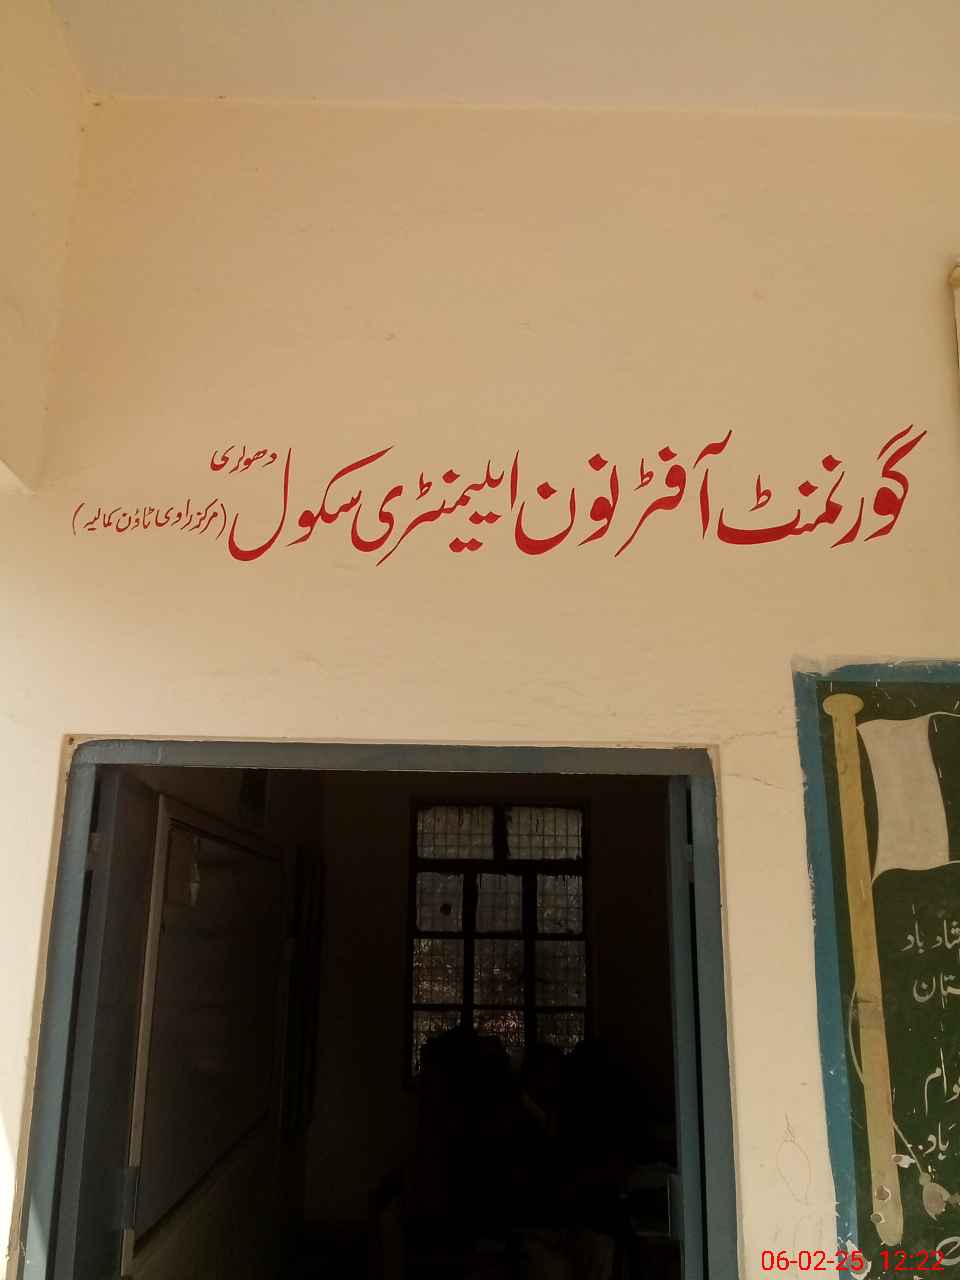 گورنمنٹ آفٹر نون ایلیمنٹری سکول دھولری
(مرکز راوی ٹاؤن کمالیہ)
شاد باد
باد
06-02-25 12:22